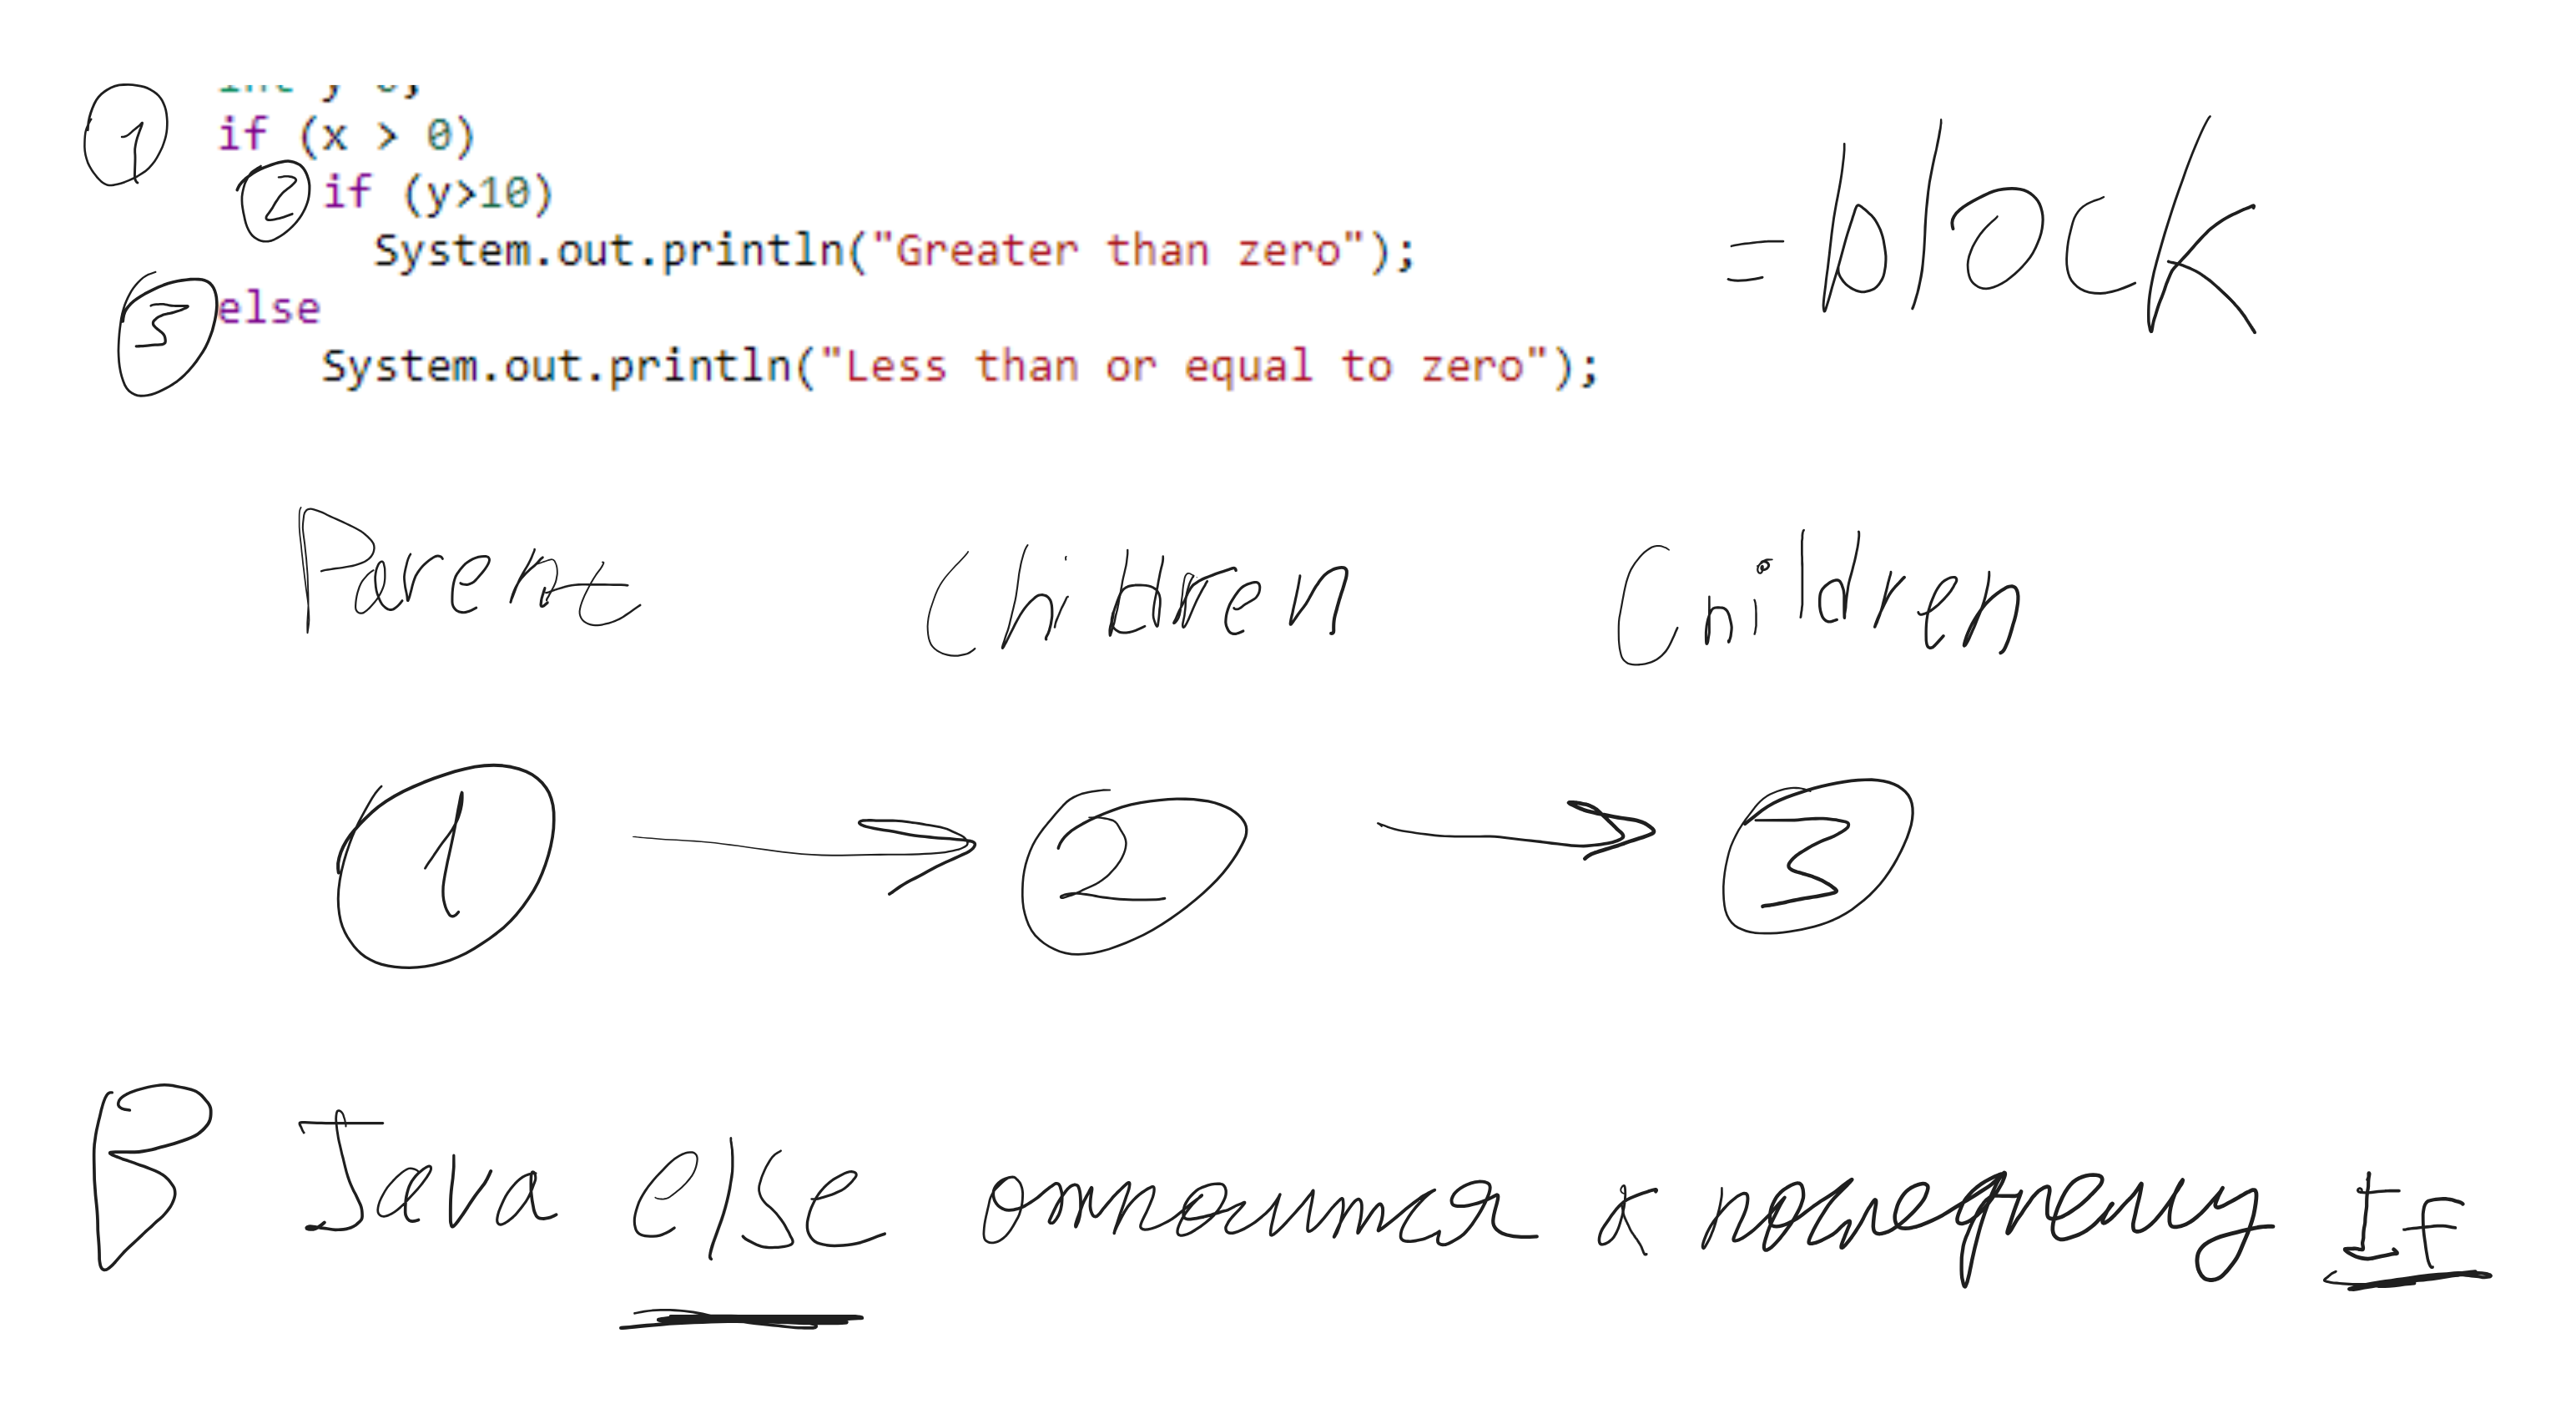 int y 0;
1 if (x > 0)
2 if (y>10)
System.out.println("Greater than zero");
3 else
System.out.println("Less than or equal to zero");
= block
Parent Children Children
1 2 3
В Java else относится к последнему If